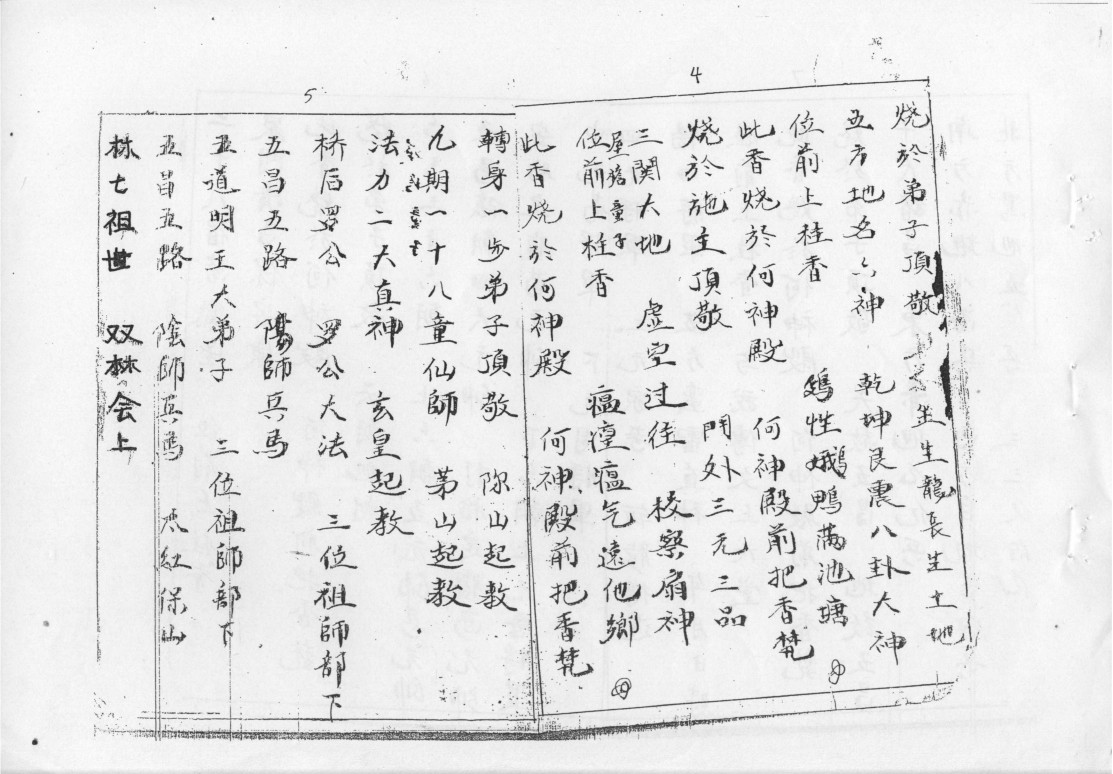 4
烧於弟子頂敬 坐生龍長生土地
五方地名六神 乾坤艮震八卦大神
位前上桂香 鸡牲鵝鴨滿池塘
此香烧於何神殿 何神殿前把香焚
烧於施主頂敬 門外三元三品
三関大地 虚空过往 校察扇神
屋簷童子
位前上桂香 瘟㾮瘟气遠他鄉
此香烧於何神殿 何神殿前把香焚
5
轉身一步弟子頂敬 你山起教
九期一十八童仙師 茅山起教
法力二大真神 玄皇起教
桥后罗公 罗公大法 三位祖師部下
五昌五路 陽師兵馬
五道明王大弟子 三位祖師部下
五昌五路 陰師兵馬 太紅保山
林七祖世 双林会上